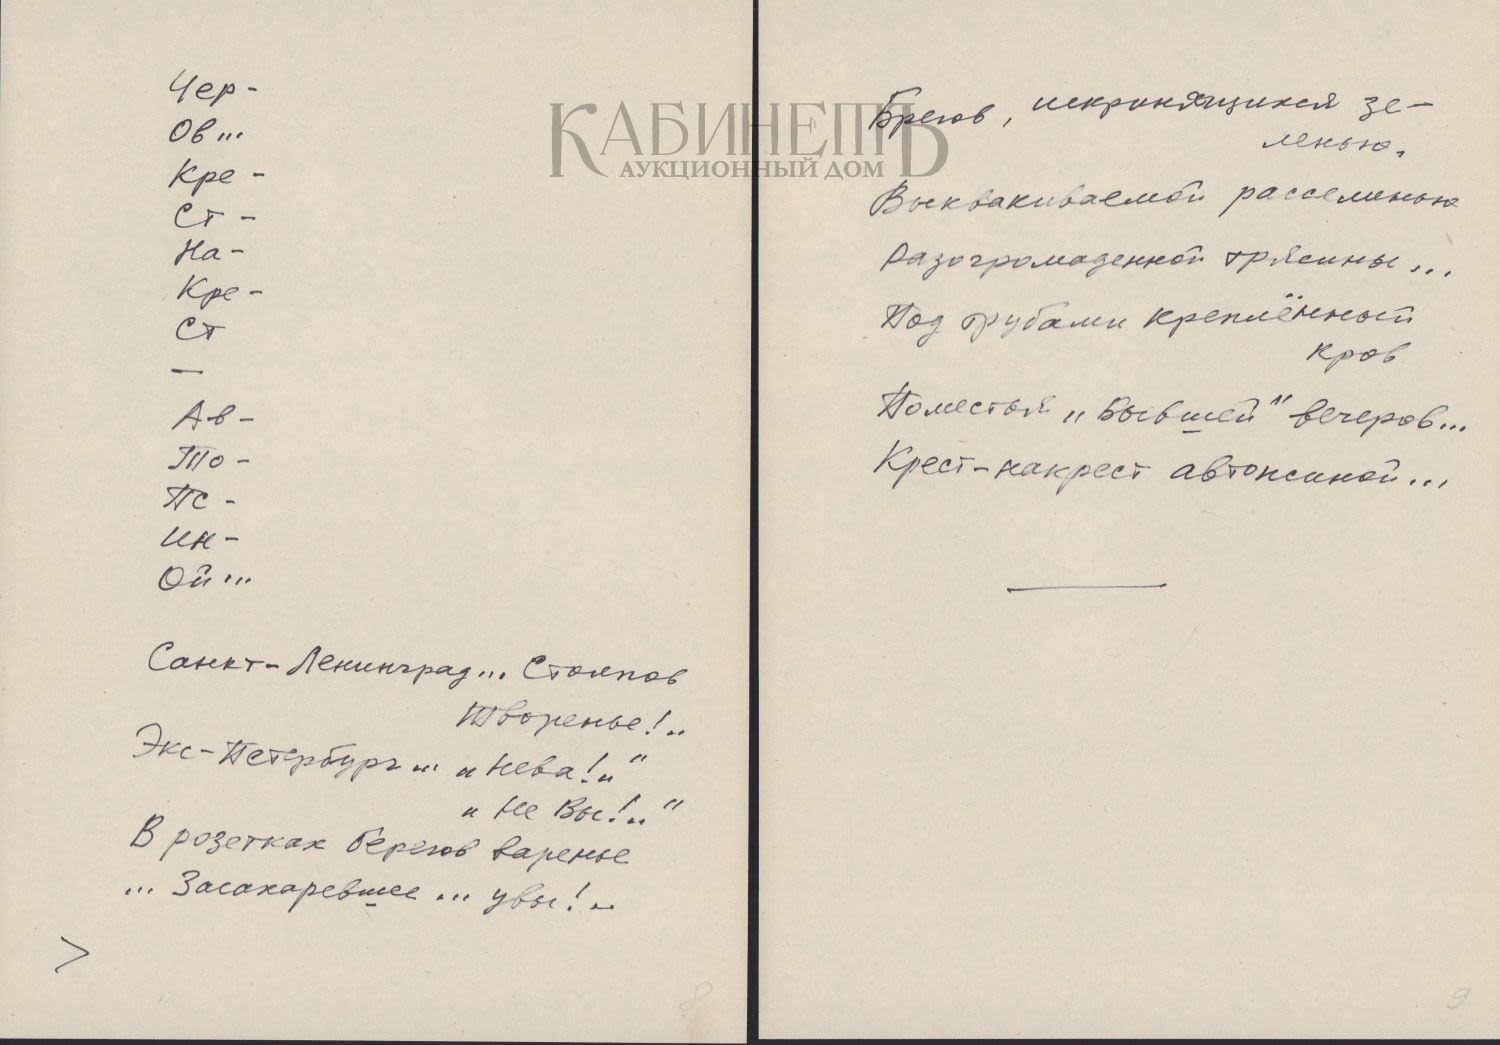 Чер-
Ов...
Кре-
Ст-
На-
Кре-
Ст
—
Ав-
То-
Пс-
Ин-
Ой...
Санкт-Ленинград... Столпов
Творенье!..
Экс-Петербург... „Нева!.."
„Не Вы!.."
В розетках берегов варенье
... Засахаревшее... увы!..
>
8
КАБИНЕТЪ
АУКЦИОННЫЙ ДОМ
Брегов, искринящихся зе-
ленью,
Выквакиваемой расселинью
Разогромаденной трясины...
Под грубами креплённый
кров
Поместья „Бывшей" вечеров...
Крест-накрест автопсиной...
9